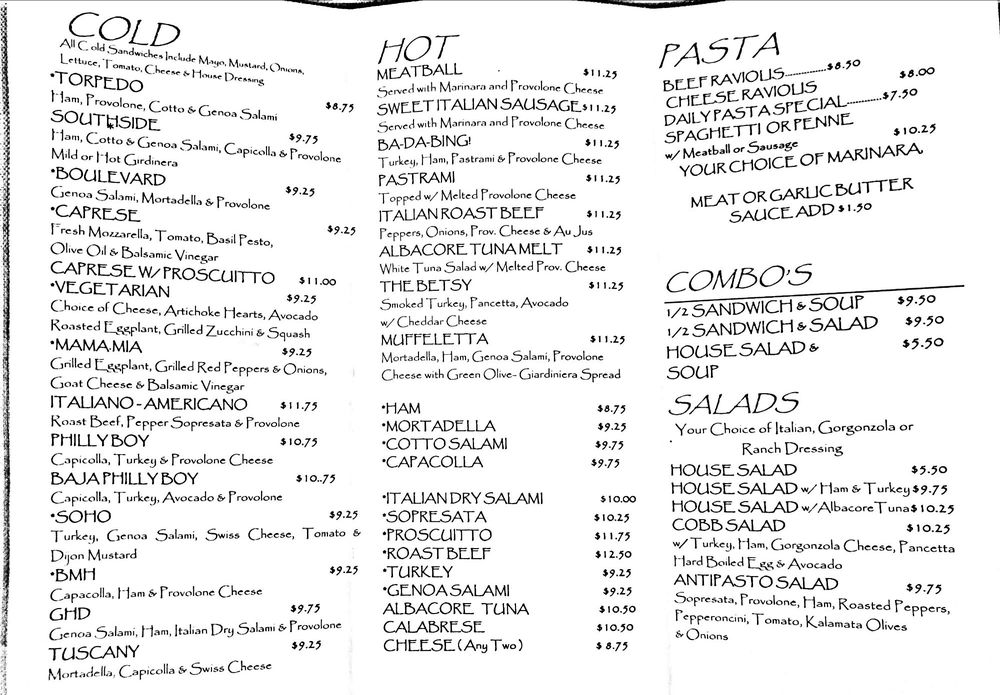 COLD
All Cold Sandwiches Include Mayo, Mustard, Onions,
Lettuce, Tomato, Cheese & House Dressing
•TORPEDO $8.75
Ham, Provolone, Cotto & Genoa Salami
SOUTHSIDE $9.75
Ham, Cotto & Genoa Salami, Capicolla & Provolone
Mild or Hot Girdinera
•BOULEVARD $9.25
Genoa Salami, Mortadella & Provolone
•CAPRESE $9.25
Fresh Mozzarella, Tomato, Basil Pesto,
Olive Oil & Balsamic Vinegar
CAPRESE W/ PROSCUITTO $11.00
•VEGETARIAN $9.25
Choice of Cheese, Artichoke Hearts, Avocado
Roasted Eggplant, Grilled Zucchini & Squash
•MAMA MIA $9.25
Grilled Eggplant, Grilled Red Peppers & Onions,
Goat Cheese & Balsamic Vinegar
ITALIANO - AMERICANO $11.75
Roast Beef, Pepper Sopresata & Provolone
PHILLY BOY $10.75
Capicolla, Turkey & Provolone Cheese
BAJA PHILLY BOY $10..75
Capicolla, Turkey, Avocado & Provolone
•SOHO $9.25
Turkey, Genoa Salami, Swiss Cheese, Tomato &
Dijon Mustard
•BMH $9.25
Capacolla, Ham & Provolone Cheese
GHD $9.75
Genoa Salami, Ham, Italian Dry Salami & Provolone
TUSCANY $9.25
Mortadella, Capicolla & Swiss Cheese
HOT
MEATBALL $11.25
Served with Marinara and Provolone Cheese
SWEET ITALIAN SAUSAGE $11.25
Served with Marinara and Provolone Cheese
BA-DA-BING! $11.25
Turkey, Ham, Pastrami & Provolone Cheese
PASTRAMI $11.25
Topped w/ Melted Provolone Cheese
ITALIAN ROAST BEEF $11.25
Peppers, Onions, Prov. Cheese & Au Jus
ALBACORE TUNA MELT $11.25
White Tuna Salad w/ Melted Prov. Cheese
THE BETSY $11.25
Smoked Turkey, Pancetta, Avocado
w/ Cheddar Cheese
MUFFELETTA $11.25
Mortadella, Ham, Genoa Salami, Provolone
Cheese with Green Olive- Giardiniera Spread
•HAM $8.75
•MORTADELLA $9.25
•COTTO SALAMI $9.75
•CAPACOLLA $9.75
•ITALIAN DRY SALAMI $10.00
•SOPRESATA $10.25
•PROSCUITTO $11.75
•ROAST BEEF $12.50
•TURKEY $9.25
•GENOA SALAMI $9.25
ALBACORE TUNA $10.50
CALABRESE $10.50
CHEESE (Any Two) $8.75
PASTA
BEEF RAVIOLIS..............$8.50
CHEESE RAVIOLIS $8.00
DAILY PASTA SPECIAL............$7.50
SPAGHETTI OR PENNE $10.25
w/ Meatball or Sausage
YOUR CHOICE OF MARINARA,
MEAT OR GARLIC BUTTER
SAUCE ADD $1.50
COMBO'S
1/2 SANDWICH & SOUP $9.50
1/2 SANDWICH & SALAD $9.50
HOUSE SALAD & $5.50
SOUP
SALADS
Your Choice of Italian, Gorgonzola or
Ranch Dressing
HOUSE SALAD $5.50
HOUSE SALAD w/ Ham & Turkey $9.75
HOUSE SALAD w/Albacore Tuna $10.25
COBB SALAD $10.25
w/ Turkey, Ham, Gorgonzola Cheese, Pancetta
Hard Boiled Egg & Avocado
ANTIPASTO SALAD $9.75
Sopresata, Provolone, Ham, Roasted Peppers,
Pepperoncini, Tomato, Kalamata Olives
& Onions